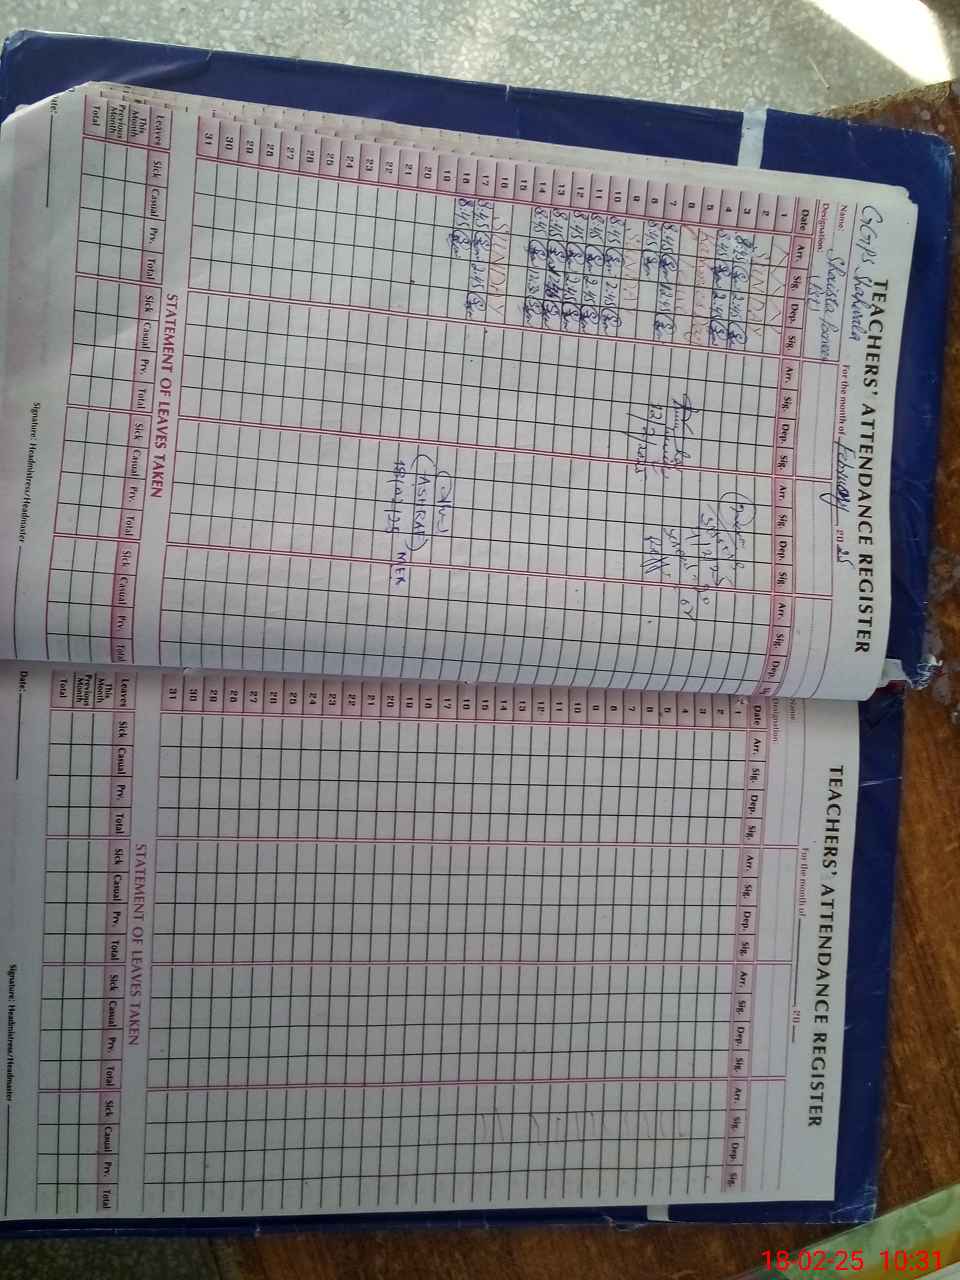 TEACHERS' ATTENDANCE REGISTER
GGPS
Name: Shaista
For the month of February 2025
Designation:
Date Arr. Sig. Dep. Sig. Arr. Sig. Dep. Sig. Arr. Sig. Dep. Sig. Arr. Sig. Dep.
1
2 SUNDAY
3 8.45 2.45
4 8.45 2.45
5
6
7 8.45 12.45
8 8.45
9 SUNDAY
10 8.45 2.45
11 8.45 2.45
12 8.45 2.45
13 8.45
14 8.45 12.30
15
16 SUNDAY
17 8.45 2.45
18 8.45
19
20
21
22
23
24
25
26
27
28
29
30
31
12/2/2025
(ASHRAF)
18/02/25
STATEMENT OF LEAVES TAKEN
Leaves Sick Casual Prv. Total Sick Casual Prv. Total Sick Casual Prv. Total Sick Casual Prv. Total
This Month
Previous Month
Total
Date:
Signature: Headmistress/Headmaster
TEACHERS' ATTENDANCE REGISTER
Name:
For the month of 20
Designation:
Date Arr. Sig. Dep. Sig. Arr. Sig. Dep. Sig. Arr. Sig. Dep. Sig. Arr. Sig. Dep. Sig.
1
2
3
4
5
6
7
8
9
10
11
12
13
14
15
16
17
18
19
20
21
22
23
24
25
26
27
28
29
30
31
STATEMENT OF LEAVES TAKEN
Leaves Sick Casual Prv. Total Sick Casual Prv. Total Sick Casual Prv. Total Sick Casual Prv. Total
This Month
Previous Month
Total
Date:
Signature: Headmistress/Headmaster
18-02-25 10:31